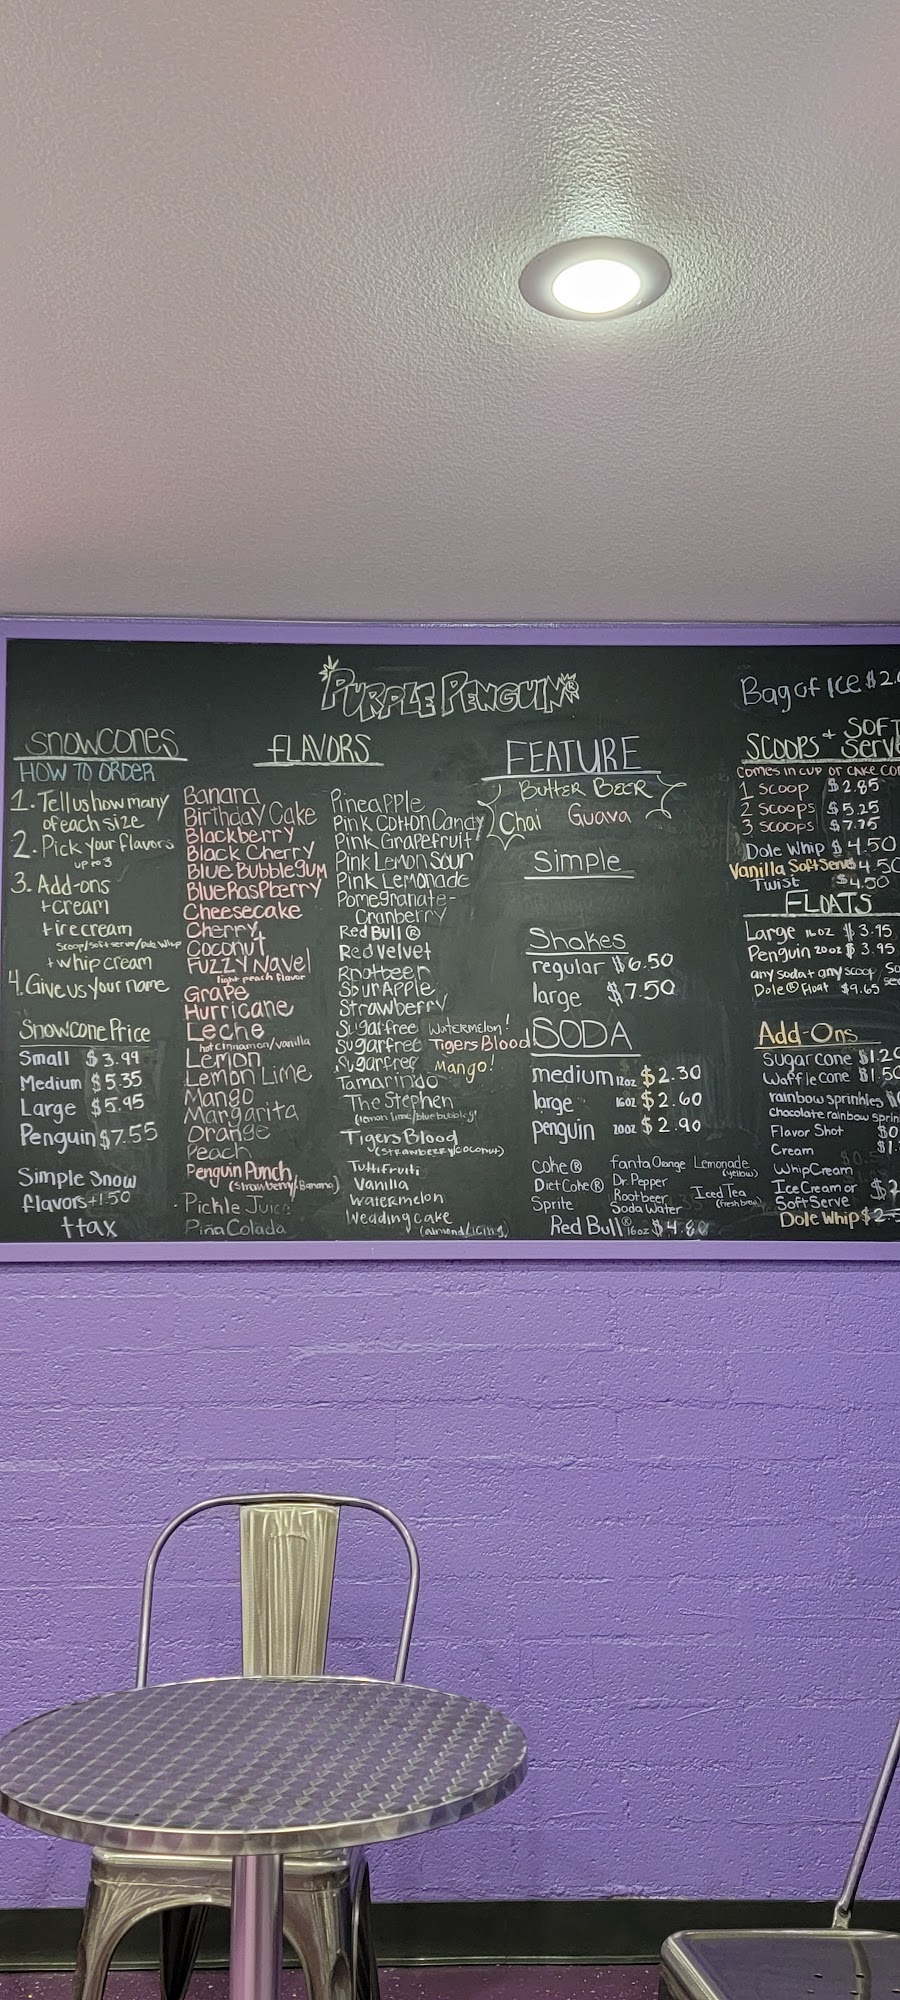 PURPLE PENGUIN®
Bag of Ice $2.
SNOWCONES
HOW TO ORDER
1. Tell us how many
of each size
2. Pick your flavors
up to 3
3. Add-ons
+cream
+ice cream
Scoop/Soft serve/Dole Whip
+whip cream
4. Give us your name
Snowcone Price
Small $3.99
Medium $5.35
Large $5.95
Penguin $7.55
Simple Snow
flavors +1.50
+tax
FLAVORS
Banana
Birthday Cake
Blackberry
Black Cherry
Blue Bubblegum
Blue Raspberry
Cheesecake
Cherry
Coconut
Fuzzy Navel
light peach flavor
Grape
Hurricane
Leche
hot cinnamon/vanilla
Lemon
Lemon Lime
Mango
Margarita
Orange
Peach
Penguin Punch
(Strawberry/Banana)
Pickle Juice
Piña Colada
Pineapple
Pink Cotton Candy
Pink Grapefruit
Pink Lemon Sour
Pink Lemonade
Pomegranate-
Cranberry
Red Bull®
Red Velvet
Rootbeer
Sour Apple
Strawberry
Sugarfree Watermelon!
Sugarfree Tigers Blood!
Sugarfree Mango!
Tamarindo
The Stephen
(lemon lime/blue bubbleg)
Tigers Blood
(strawberry/coconut)
Tutti Fruti
Vanilla
Watermelon
Wedding Cake
(almond/icing)
FEATURE
Butter Beer
Chai Guava
Simple
Shakes
regular $6.50
large $7.50
SODA
medium 12oz $2.30
large 16oz $2.60
penguin 20oz $2.90
Coke® fanta Orange Lemonade
(yellow)
Diet Coke® Dr. Pepper
Sprite Rootbeer Iced Tea
(fresh brew)
Soda Water
Red Bull® 16oz $4.80
SCOOPS + SOFT
Serve
Comes in cup or cake co
1 Scoop $2.85
2 Scoops $5.25
3 Scoops $7.75
Dole Whip $4.50
Vanilla Soft Serve 4.50
Twist $4.50
FLOATS
Large 16oz $3.75
Penguin 20oz $3.95
any soda + any scoop/
Dole® Float $9.65
Add-Ons
Sugar cone $1.20
Waffle cone $1.50
rainbow sprinkles
chocolate rainbow sprin
Flavor Shot $0
Cream $1.
Whip Cream
Ice Cream or $2
Soft Serve
Dole Whip $2.